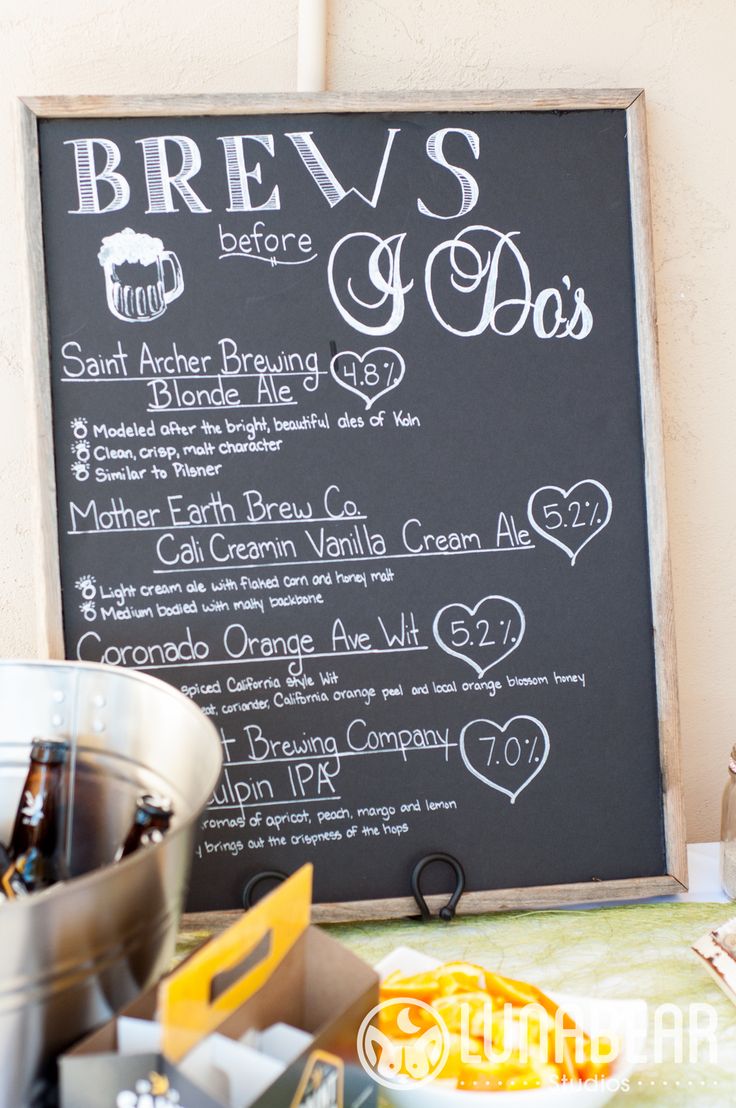 BREWS
before
I Do's
Saint Archer Brewing
Blonde Ale
4.8%
Modeled after the bright, beautiful ales of Koln
Clean, crisp, malt character
Similar to Pilsner
Mother Earth Brew Co.
Cali Creamin Vanilla Cream Ale
5.2%
Light cream ale with flaked corn and honey malt
Medium bodied with malty backbone
Coronado Orange Ave Wit
5.2%
spiced California style Wit
coriander, California orange peel and local orange blossom honey
Brewing Company
7.0%
IPA
of apricot, peach, mango and lemon
brings out the crispness of the hops
LUNABEAR
Studios